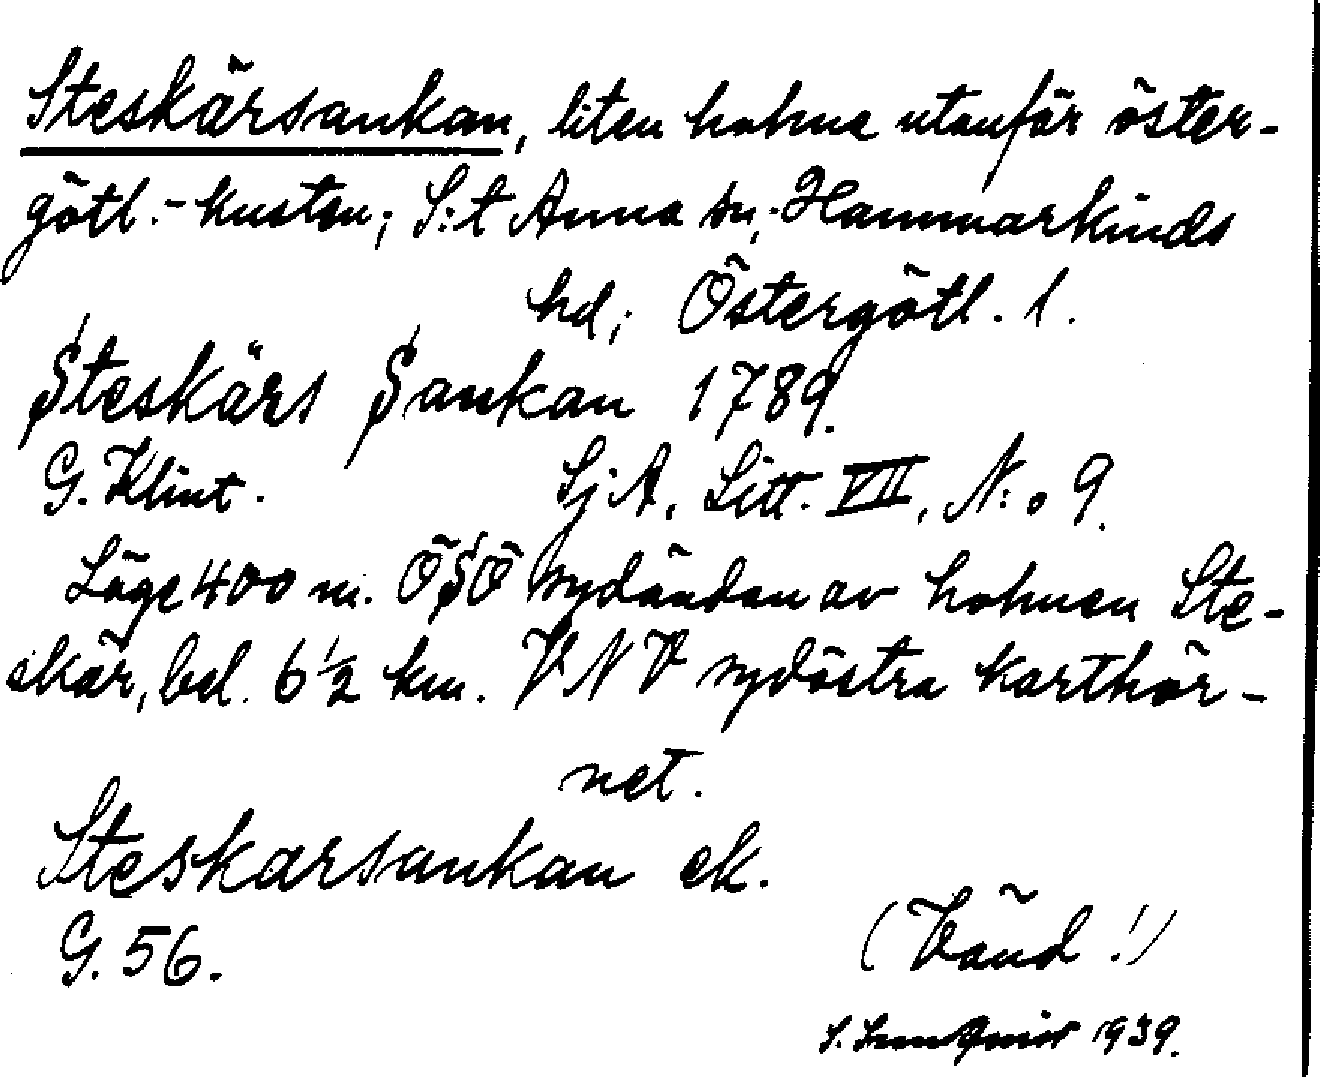 Steskärsankan, liten holme utanför öster-
götl.-kusten; S:t Anna sn; Hammarkinds
hd; Östergötl. l.
Steskärs Sankan 1789.
G. Klint. SjA, Litt. VII, N:o 9.
Läge 400 m. ÖSÖ sydändan av holmen Ste-
skär, bel. 6 1/2 km. VNV sydöstra karthör-
net.
Steskarsankan ek.
G. 56. (Vänd!)
S. 1939.